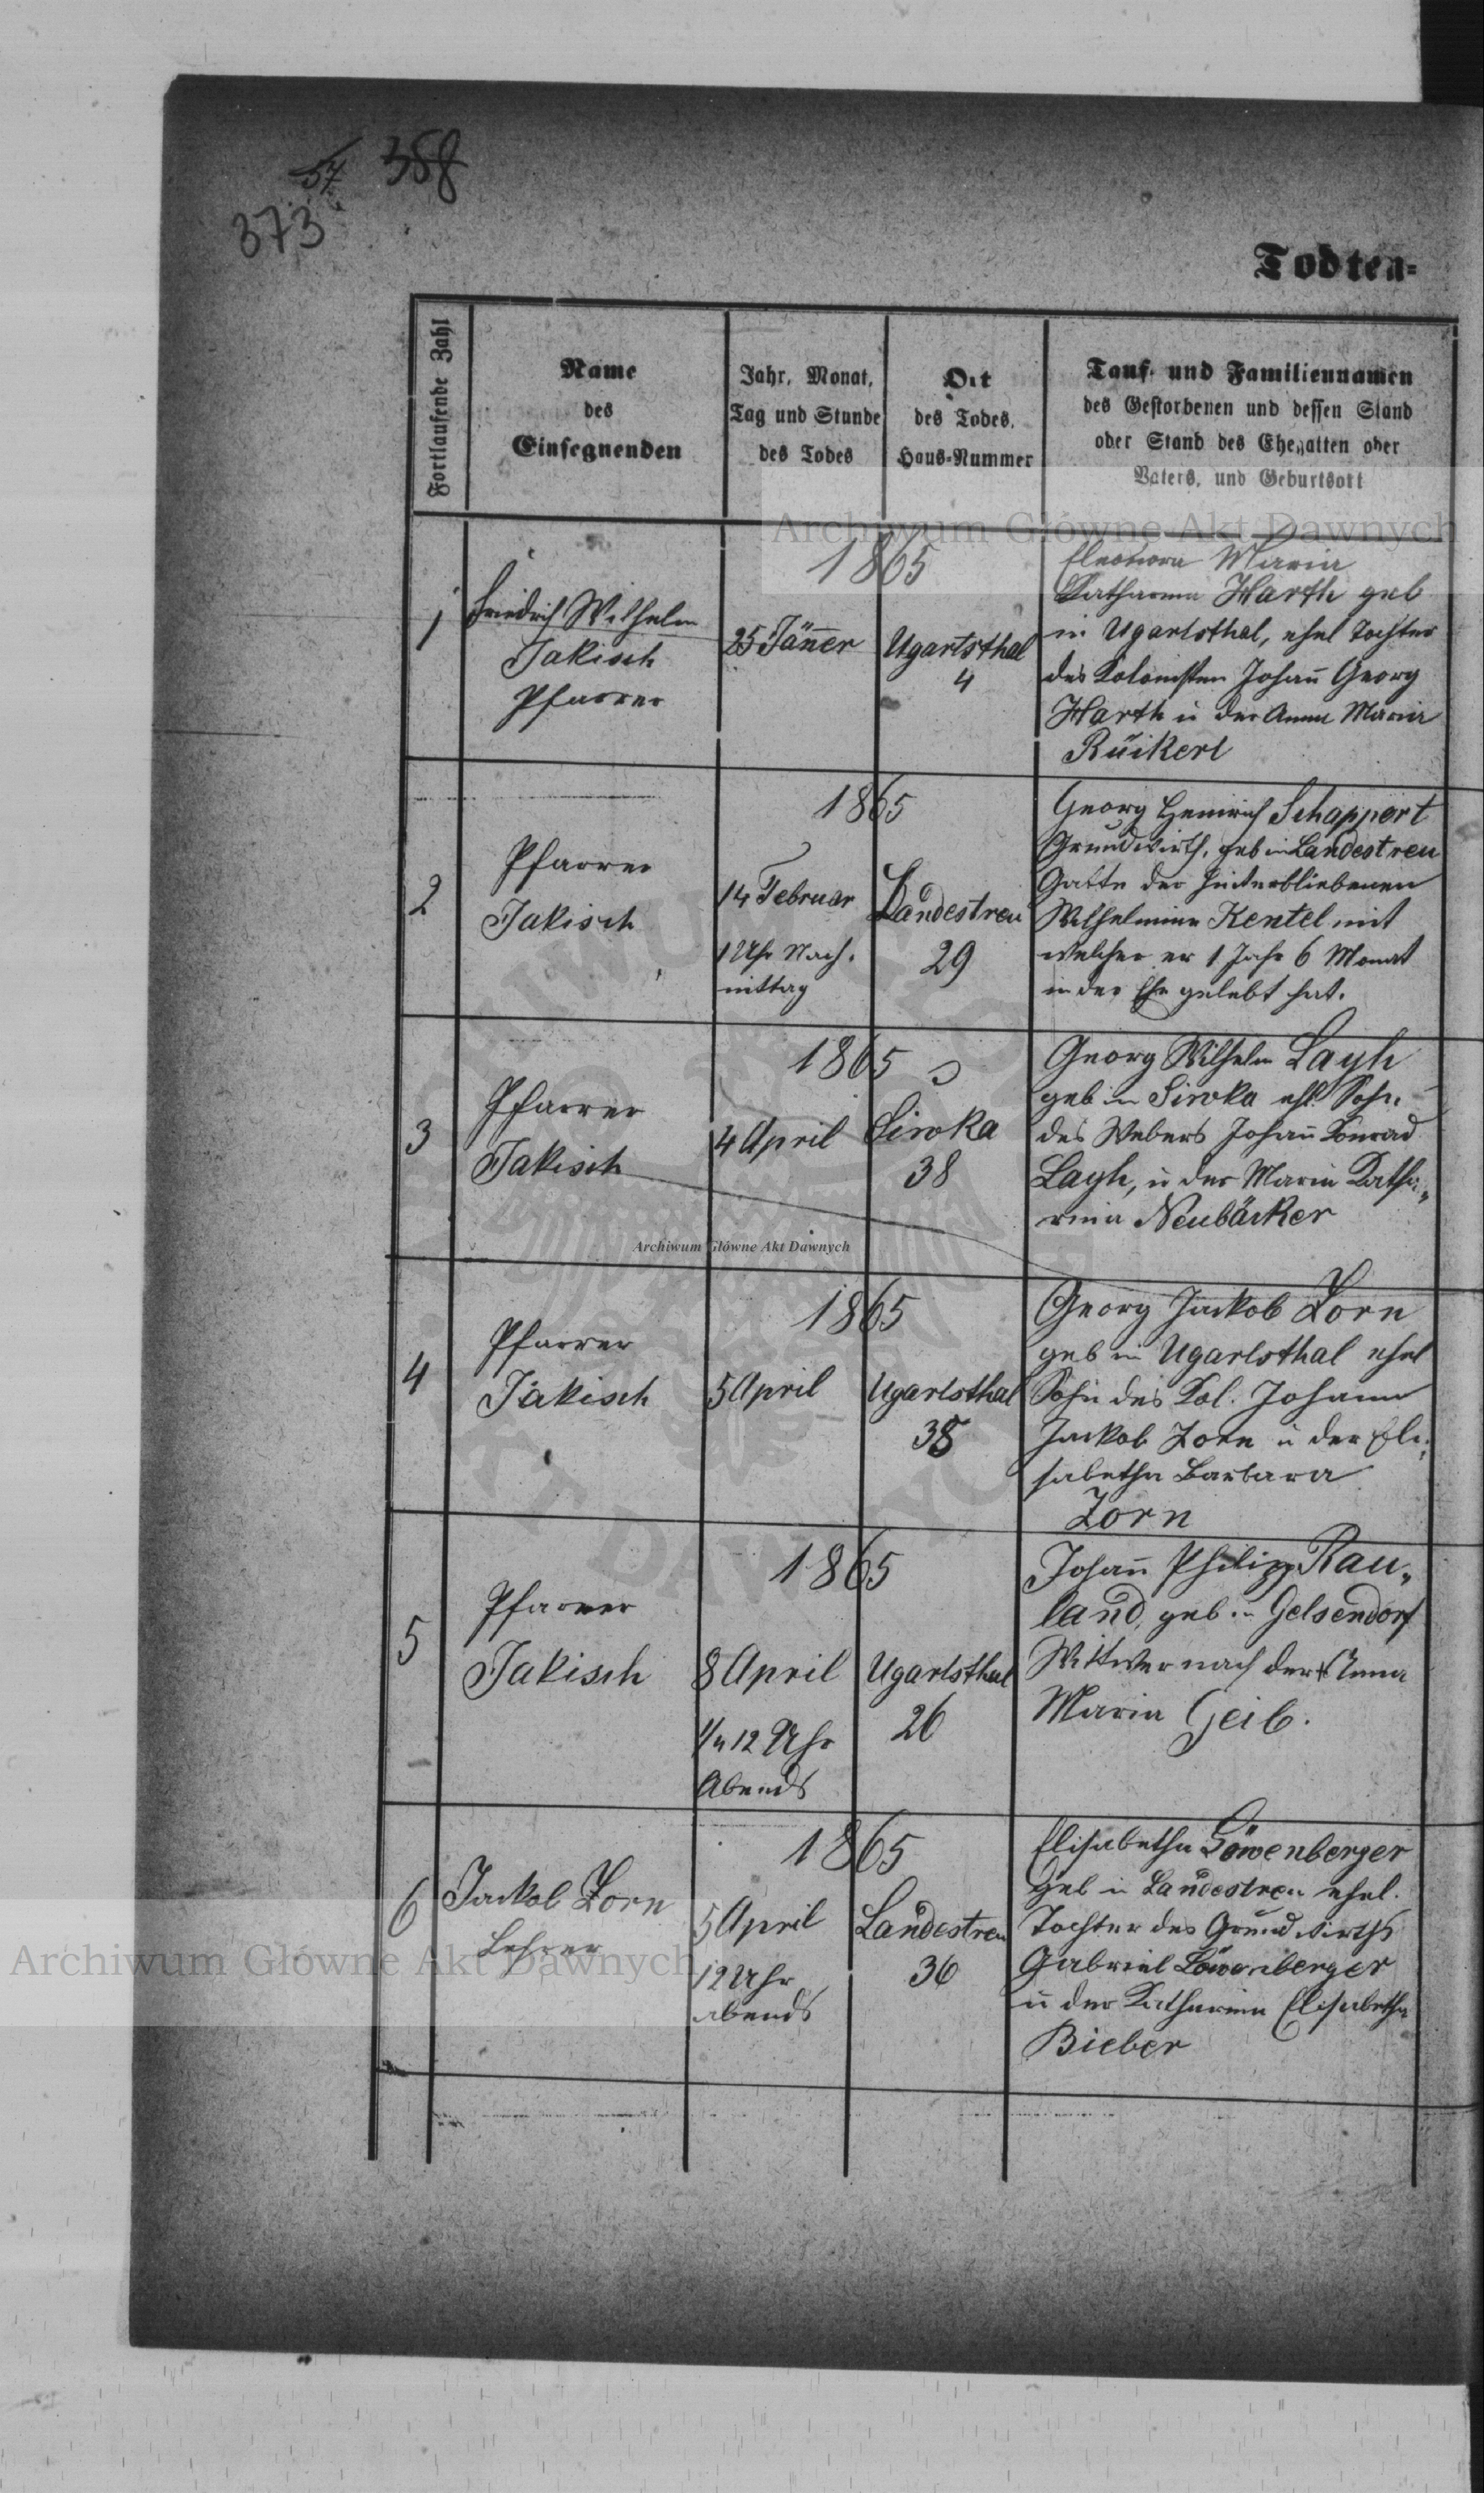 57 358
373
Todten-
Fortlaufende Zahl
Name
des
Einsegnenden
Jahr, Monat,
Tag und Stunde
des Todes
Ort
des Todes,
Haus-Nummer
Tauf- und Familiennamen
des Gestorbenen und dessen Stand
oder Stand des Ehegatten oder
Vaters, und Geburtsort
Archiwum Główne Akt Dawnych
1
Friedrich Wilhelm
Jakisch
Pfarrer
1865
25 Jänner
Ugartsthal
4
Eleonora Maria
Katharina Harth geb
in Ugartsthal, ehel Tochter
des Kolonisten Johañ Georg
Harth u der Anna Maria
Rückerl
2
Pfarrer
Jakisch
1865
14 Februar
1 Uhr Nach-
mittag
Landestreu
29
Georg Heinrich Schappert
Grundwirth, geb in Landestreu
Gatte der hinterbliebenen
Wilhelmine Kentel mit
welcher er 1 Jahr 6 Monat
in der Ehe gelebt hat.
3
Pfarrer
Jakisch
1865
4 April
Siwka
38
Georg Wilhelm Layh
geb in Siwka ehl. Sohn
des Webers Johañ Konrad
Layh, u der Maria Katha„
rina Neubäcker
Archiwum Główne Akt Dawnych
4
Pfarrer
Jakisch
1865
5 April
Ugartsthal
38
Georg Jackob Zorn
geb in Ugartsthal ehel
Sohn des Kol. Johann
Jackob Zorn u der Eli„
sabetha Barbara
Zorn
5
Pfarrer
Jakisch
1865
8 April
1/4 12 Uhr
Abends
Ugartsthal
26
Johañ Philipp Rau„
land, geb in Gelsendorf
Wittwer nach der † Anna
Maria Geib.
6
Jackob Zorn
Lehrer
1865
5 April
12 Uhr
abends
Landestreu
36
Elisabetha Löwenberger
geb in Landestreu ehel.
Tochter des Grundwirths
Gabriel Löwenberger
u der Katharina Elisabetha
Bieber
Archiwum Główne Akt Dawnych